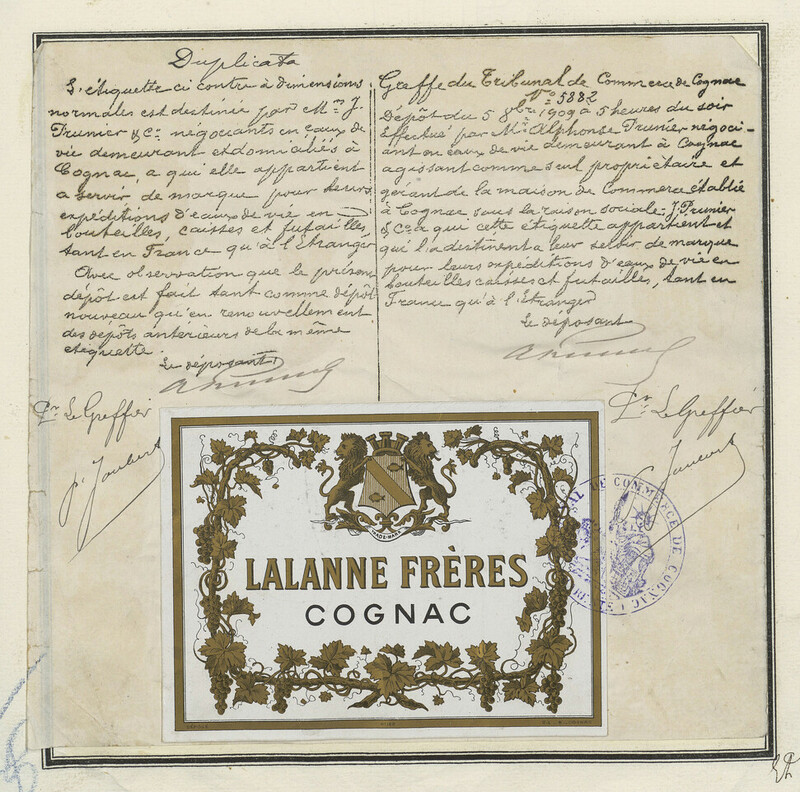 Duplicata
L'étiquette ci contre à dimensions
normales est destinée par Mrs J.
Prunier & Co négociants en eaux de
vie demeurant et domiciliés à
Cognac, a qui elle appartient
a servir de marque pour leurs
expéditions d'eaux de vie en
bouteilles, caisses et futailles,
tant en France qu'à l'Etranger
Avec observation que le présent
dépôt est fait tant comme dépôt
nouveau qu'en renouvellement
des dépôts antérieurs de la même
étiquette.
Le déposant
Pr Le Greffier
Greffe du Tribunal de Commerce de Cognac
No 5882
Dépôt du 5 9bre 1909 à 5 heures du soir
Effectué par Mr Alphonse Prunier négoci-
ant en eaux de vie demeurant à Cognac
agissant comme seul propriétaire et
gérant de la maison de Commerce établie
à Cognac sous la raison sociale J. Prunier
& Co a qui cette étiquette appartient et
qui l'a destinent a leur servir de marque
pour leurs expéditions d'eaux de vie en
bouteilles caisses et futailles, tant en
France qu'à l'Etranger
Le déposant
Pr Le Greffier
TRADE-MARK
LALANNE FRÈRES
COGNAC
DE COMMERCE DE COGNAC